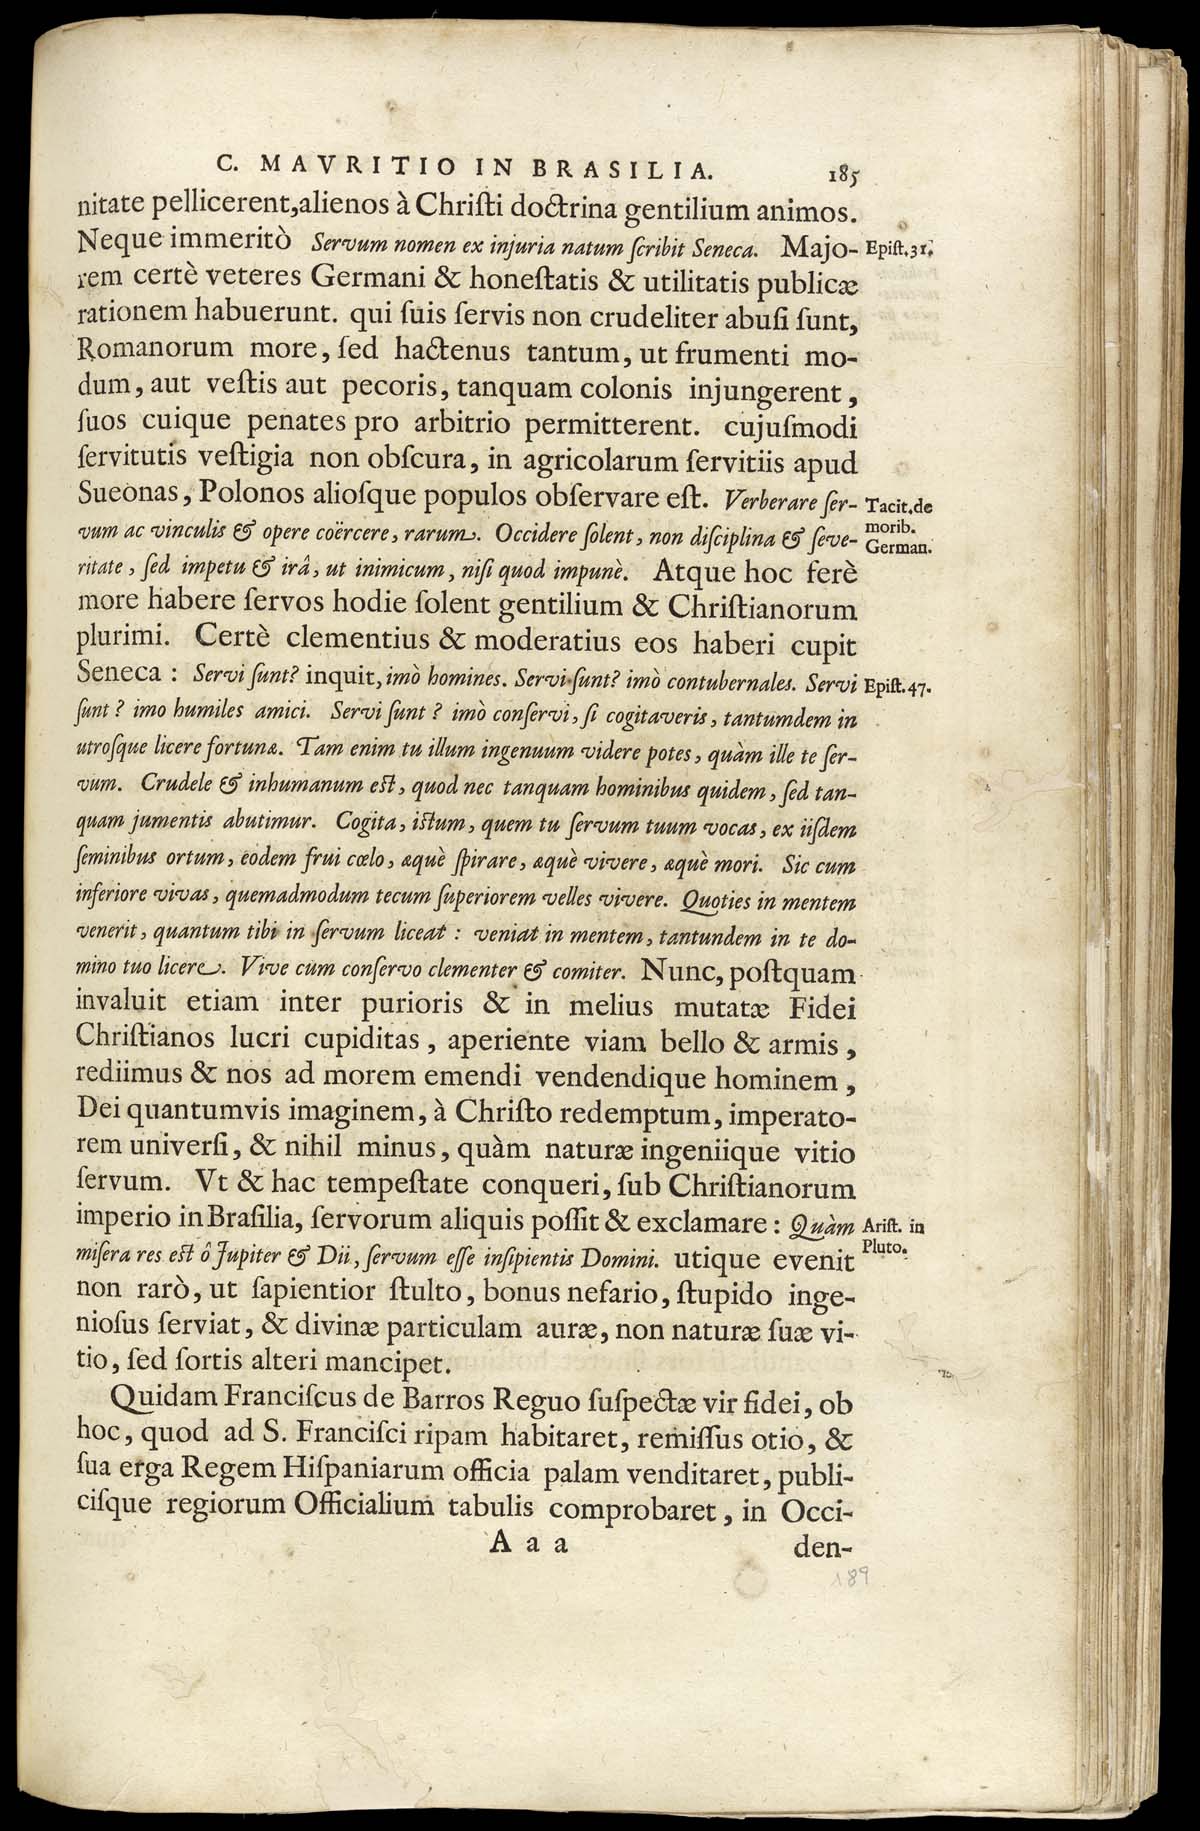 C. MAVRITIO IN BRASILIA. 185
nitate pellicerent, alienos à Chriſti doctrina gentilium animos.
Neque immeritò Servum nomen ex injuria natum ſcribit Seneca. Majo- Epiſt. 31.
rem certè veteres Germani & honeſtatis & utilitatis publicæ
rationem habuerunt. qui ſuis ſervis non crudeliter abuſi ſunt,
Romanorum more, ſed hactenus tantum, ut frumenti mo-
dum, aut veſtis aut pecoris, tanquam colonis injungerent,
ſuos cuique penates pro arbitrio permitterent. cujuſmodi
ſervitutis veſtigia non obſcura, in agricolarum ſervitiis apud
Sueonas, Polonos alioſque populos obſervare eſt. Verberare ſer- Tacit. de
vum ac vinculis & opere coërcere, rarum. Occidere ſolent, non diſciplina & ſeve- morib.
German.
ritate, ſed impetu & irâ, ut inimicum, niſi quod impunè. Atque hoc ferè
more habere ſervos hodie ſolent gentilium & Chriſtianorum
plurimi. Certè clementius & moderatius eos haberi cupit
Seneca: Servi ſunt? inquit, imò homines. Servi ſunt? imò contubernales. Servi Epiſt. 47.
ſunt? imo humiles amici. Servi ſunt? imò conſervi, ſi cogitaveris, tantumdem in
utroſque licere fortunæ. Tam enim tu illum ingenuum videre potes, quàm ille te ſer-
vum. Crudele & inhumanum eſt, quod nec tanquam hominibus quidem, ſed tan-
quam jumentis abutimur. Cogita, iſtum, quem tu ſervum tuum vocas, ex iiſdem
ſeminibus ortum, eodem frui cœlo, æquè ſpirare, æquè vivere, æquè mori. Sic cum
inferiore vivas, quemadmodum tecum ſuperiorem velles vivere. Quoties in mentem
venerit, quantum tibi in ſervum liceat: veniat in mentem, tantundem in te do-
mino tuo licere. Vive cum conſervo clementer & comiter. Nunc, poſtquam
invaluit etiam inter purioris & in melius mutatæ Fidei
Chriſtianos lucri cupiditas, aperiente viam bello & armis,
rediimus & nos ad morem emendi vendendique hominem,
Dei quantumvis imaginem, à Chriſto redemptum, imperato-
rem univerſi, & nihil minus, quàm naturæ ingeniique vitio
ſervum. Vt & hac tempeſtate conqueri, ſub Chriſtianorum
imperio in Braſilia, ſervorum aliquis poſſit & exclamare: Quàm Ariſt. in
miſera res eſt ô Jupiter & Dii, ſervum eſſe inſipientis Domini. utique evenit Pluto.
non rarò, ut ſapientior ſtulto, bonus nefario, ſtupido inge-
nioſus ſerviat, & divinæ particulam auræ, non naturæ ſuæ vi-
tio, ſed ſortis alteri mancipet.
Quidam Franciſcus de Barros Reguo ſuſpectæ vir fidei, ob
hoc, quod ad S. Franciſci ripam habitaret, remiſſus otio, &
ſua erga Regem Hiſpaniarum officia palam venditaret, publi-
ciſque regiorum Officialium tabulis comprobaret, in Occi-
A a a den-
189